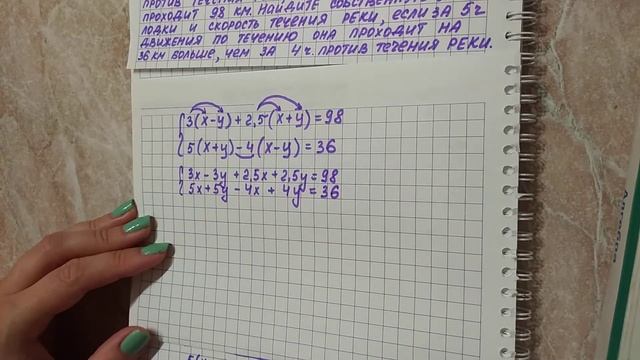 ПРОТИВ ТЕЧЕНИЯ
ПРОХОДИТ 98 КМ. НАЙДИТЕ СОБСТВЕННУЮ
ЛОДКИ И СКОРОСТЬ ТЕЧЕНИЯ РЕКИ, ЕСЛИ ЗА 5 Ч
ДВИЖЕНИЯ ПО ТЕЧЕНИЮ ОНА ПРОХОДИТ НА
36 КМ БОЛЬШЕ, ЧЕМ ЗА 4 Ч. ПРОТИВ ТЕЧЕНИЯ РЕКИ.
3(x-y)+2,5(x+y)=98
5(x+y)-4(x-y)=36
3x-3y+2,5x+2,5y=98
5x+5y-4x+4y=36